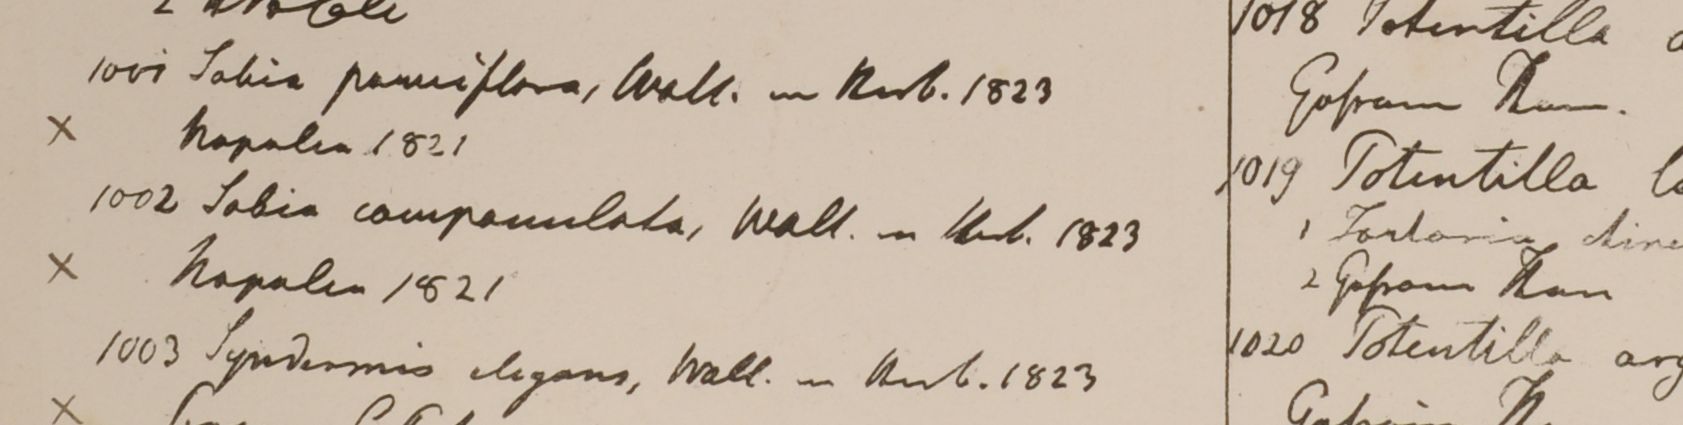 1001 Sabia parviflora, Wall. in Herb. 1823
× Napalia 1821
1002 Sabia campanulata, Wall. in Herb. 1823
× Napalia 1821
1003 Syndesmis elegans, Wall. in Herb. 1823
×
1018 Potentilla
Gossam Than.
1019 Potentilla
1 Tartaria
2 Gossam Than
1020 Potentilla arg